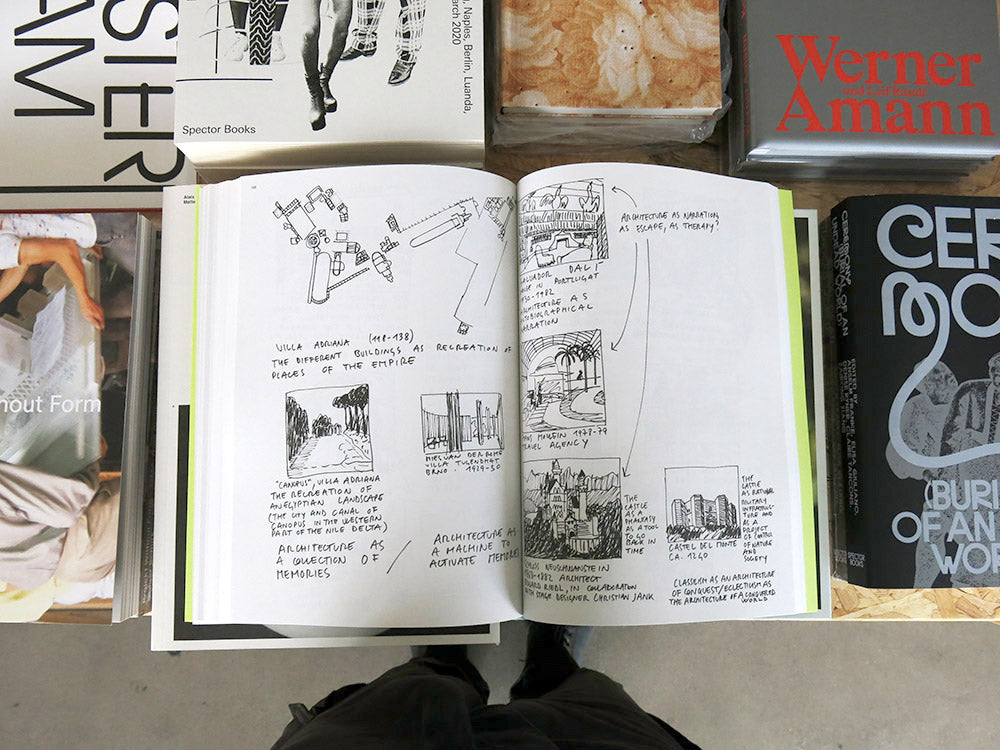 SIER
AM
Naples, Berlin, Luanda,
March 2020
Spector Books
Werner
und Leif Randt
Amann
hout Form
VILLA ADRIANA (118-138)
THE DIFFERENT BUILDINGS AS RECREATION OF
PLACES OF THE EMPIRE
"CANOPUS", VILLA ADRIANA
THE RECREATION OF
AN EGYPTIAN LANDSCAPE
(THE CITY AND CANAL OF
CANOPUS IN THE WESTERN
PART OF THE NILE DELTA)
MIES VAN DER ROHE
VILLA TUGENDHAT
BRNO. 1929-30
ARCHITECTURE AS
A COLLECTION OF /
MEMORIES
ARCHITECTURE AS
A MACHINE TO
ACTIVATE MEMORIES
ARCHITECTURE AS NARRATION,
AS ESCAPE, AS THERAPY?
SALVADOR DALÍ
IN PORTLLIGAT
1930-1982
ARCHITECTURE AS
AUTOBIOGRAPHICAL
NARRATION
HANS HOLLEIN 1978-79
TRAVEL AGENCY
THE
CASTLE
AS A
PHANTASY
AS A TOOL
TO GO
BACK IN
TIME
NEUSCHWANSTEIN
1882 ARCHITECT
EDUARD RIEDL, IN COLLABORATION
WITH STAGE DESIGNER CHRISTIAN JANK
CASTEL DEL MONTE
CA. 1240
THE
CASTLE
AS
MILITARY
INFRASTRUC-
TURE AND
AS A
PROJECT
OF CONTROL
OF NATURE
AND
SOCIETY
CLASSICISM AS AN ARCHITECTURE
OF CONQUEST/ECLECTICISM AS
THE ARCHITECTURE OF A CONQUERED
WORLD
CEREMONY
BURIAL OF AN
UNDEAD WORLD
EDITED BY
ANSELM FRANKE, ELISA GIULIANO,
DENISE RYNER, CLAIRE TANCONS,
SPECTOR
BOOKS
CER
MO
BURI
OF AN
WOR